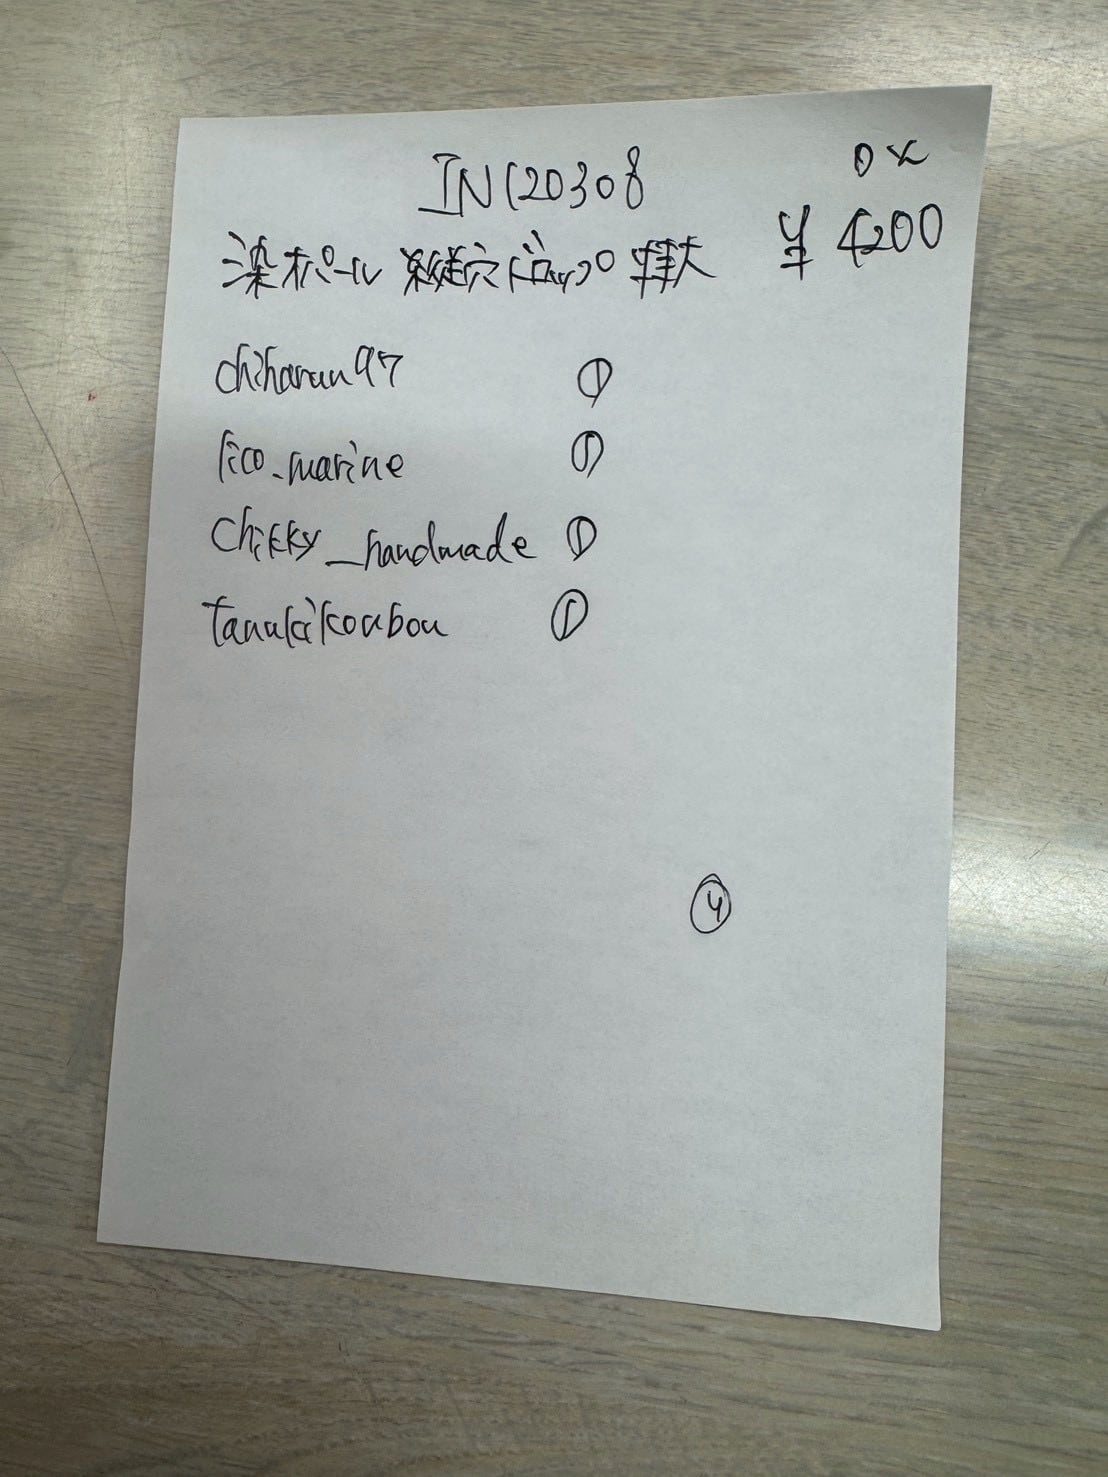 IN120308
0x
染オパール 縦穴ドロップ 特大 ¥ 4200
chiharun97 ①
lico_marine ①
chikky_handmade ①
tanukikoubou ①
④